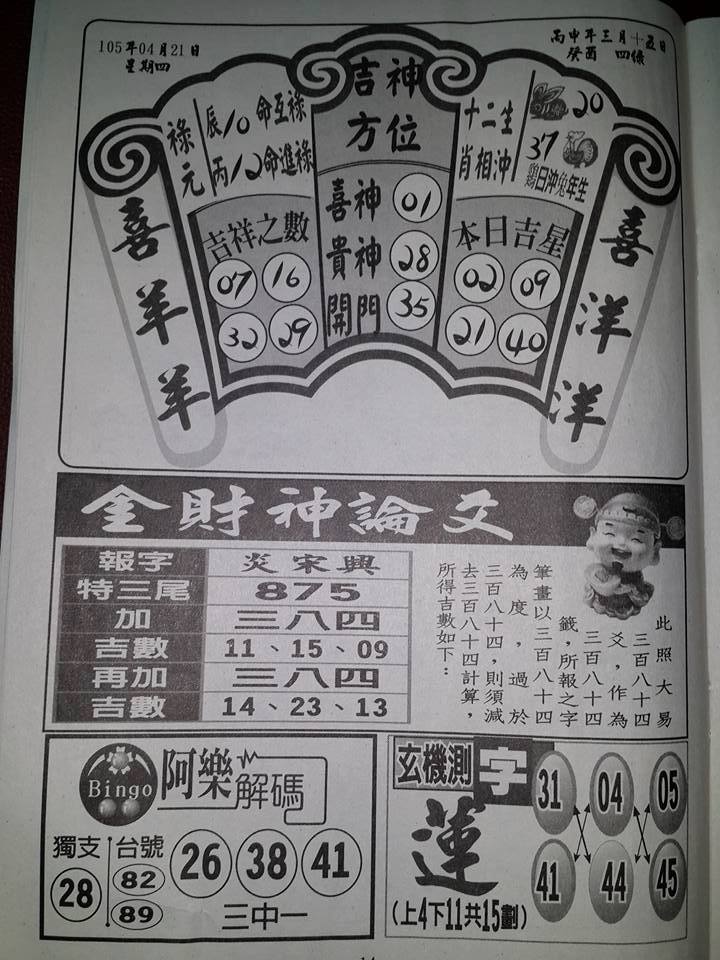 105年04月21日
星期四
丙申年三月十五日
癸酉 四綠
祿元
辰10命互祿
丙12命進祿
吉神
方位
十二生
肖相沖
20
37
雞日沖兔年生
喜羊羊
吉祥之數
07 16
32 29
喜神 01
貴神 28
開門 35
本日吉星
02 09
21 40
喜洋洋
金財神論爻
報字 炎宋興
特三尾 875
加 三八四
吉數 11、15、09
再加 三八四
吉數 14、23、13
此照大易
三百八十四
爻,作為
三百八十四
籤,所報之字
筆畫以三百八十四
為度,過於
三百八十四,則須減
去三百八十四計算,
所得吉數如下:
Bingo
阿樂解碼
獨支
28
台號
82
89
26 38 41
三中一
玄機測字
蓮
(上4下11共15劃)
31 04 05
41 44 45